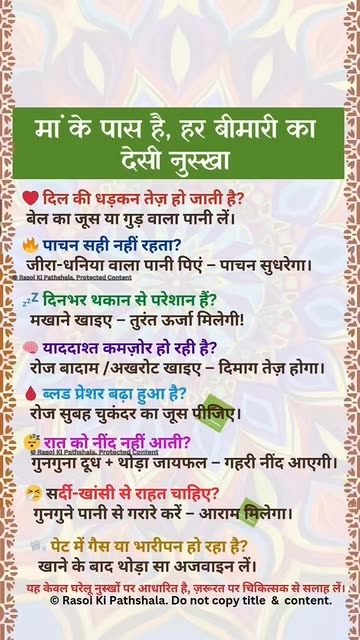 मां के पास है, हर बीमारी का
देसी नुस्खा
❤️ दिल की धड़कन तेज़ हो जाती है?
बेल का जूस या गुड़ वाला पानी लें।
🔥 पाचन सही नहीं रहता?
जीरा-धनिया वाला पानी पिएं – पाचन सुधरेगा।
© Rasoi Ki Pathshala, Protected Content
💤 दिनभर थकान से परेशान हैं?
मखाने खाइए – तुरंत ऊर्जा मिलेगी!
🧠 याददाश्त कमज़ोर हो रही है?
रोज बादाम /अखरोट खाइए – दिमाग तेज़ होगा।
🩸 ब्लड प्रेशर बढ़ा हुआ है?
रोज सुबह चुकंदर का जूस पीजिए।
😴 रात को नींद नहीं आती?
© Rasoi Ki Pathshala, Protected Content
गुनगुना दूध + थोड़ा जायफल – गहरी नींद आएगी।
🤧 सर्दी-खांसी से राहत चाहिए?
गुनगुने पानी से गरारे करें – आराम मिलेगा।
पेट में गैस या भारीपन हो रहा है?
खाने के बाद थोड़ा सा अजवाइन लें।
यह केवल घरेलू नुस्खों पर आधारित है, ज़रूरत पर चिकित्सक से सलाह लें।
© Rasoi Ki Pathshala. Do not copy title & content.